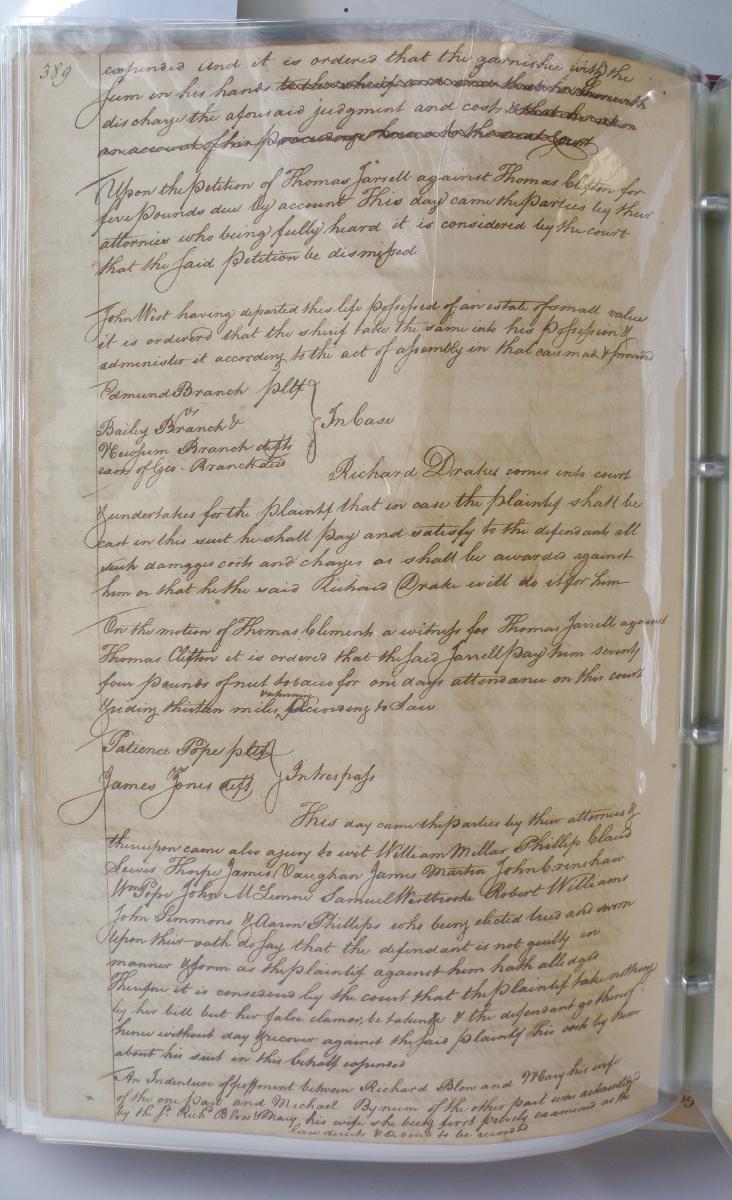 389
expended and it is ordered that the garnishee with the
sum in his hands to the sherif and
discharge the aforesaid judgment and costs & that he return
an account of his proceedings herein to the next Court
Upon the Petition of Thomas Jarrell against Thomas Clifton for
five Pounds due by account This day came the Parties by their
attornies who being fully heard it is considered by the court
that the said Petition be dismissed
John West having departed this life possessed of an estate of small value
it is ordered that the sherif take the same into his Possession &
administer it according to the act of assembly in that case made & provided
Edmund Branch pltf
vs
Bailey Branch &
In Case
Newsum Branch defts
exors of Geo. Branch decd
Richard Drake comes into court
& undertakes for the plaintif that in case the plaintif shall be
cast in this suit he shall pay and satisfy to the defendants all
such damages costs and charges as shall be awarded against
him or that he the said Richard Drake will do it for him
On the motion of Thomas Clements a witness for Thomas Jarrell against
Thomas Clifton it is ordered that the said Jarrell Pay him seventy
four pounds of net tobacco for one days attendance on this court
returning
& riding thirteen miles according to Law
Patience Pope pltf
In trespass
James Jones deft
This day came the Parties by their attornies &
thereupon came also a jury to wit William Millar Phillip Claud
Lewis Thorpe James Vaughan James Martin John Crenshaw
Wm Pope John McLemore Samuel Westbrooke Robert Williams
John Simmons & Aaron Phillips who being elected tried and sworn
upon their oath do say that the defendant is not guilty in
manner & form as the plaintif against him hath alledged
Therefore it is considered by the court that the plaintif take nothing
by her bill but her false clamor, be taken & the defendant go thereof
hence without day & recover against the said plaintif his costs by him
about his suit in this behalf expended
An Indenture of feoffment between Richard Blow and Mary his wife
of the one part and Michael Bynum of the other part was acknowledged
by the sd Richd Blow & Mary, his wife she being first privily examined as the
law directs & ordered to be recorded